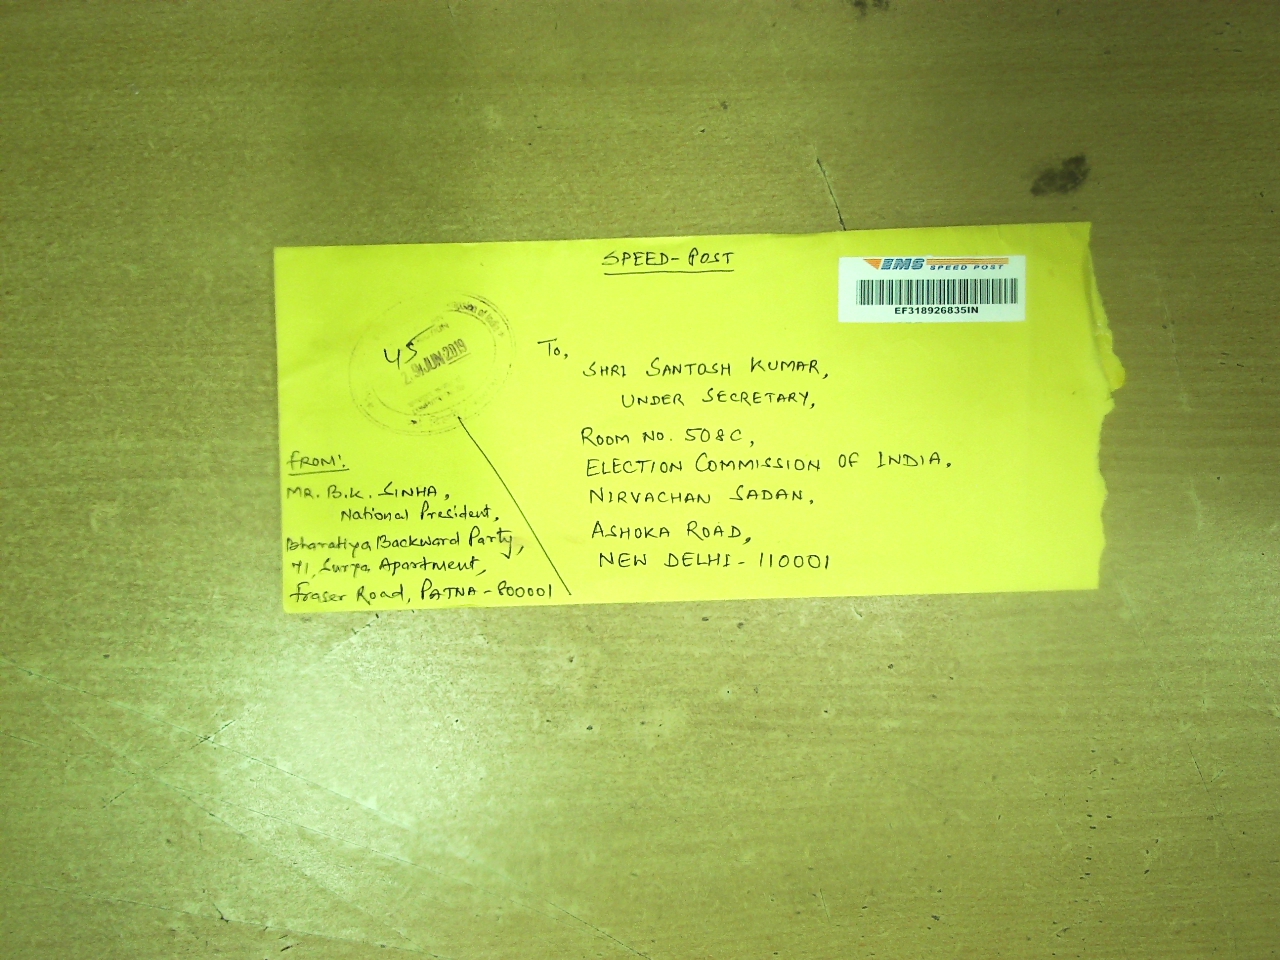 SPEED-POST
EMS SPEED POST
EF318926835IN
45
JUN 2019
To,
SHRI SANTOSH KUMAR,
UNDER SECRETARY,
ROOM NO. 508C,
ELECTION COMMISSION OF INDIA,
NIRVACHAN SADAN,
ASHOKA ROAD,
NEW DELHI - 110001
FROM:
MR. B.K. SINHA,
National President,
Bharatiya Backward Party,
71, Surya Apartment,
Fraser Road, PATNA - 800001